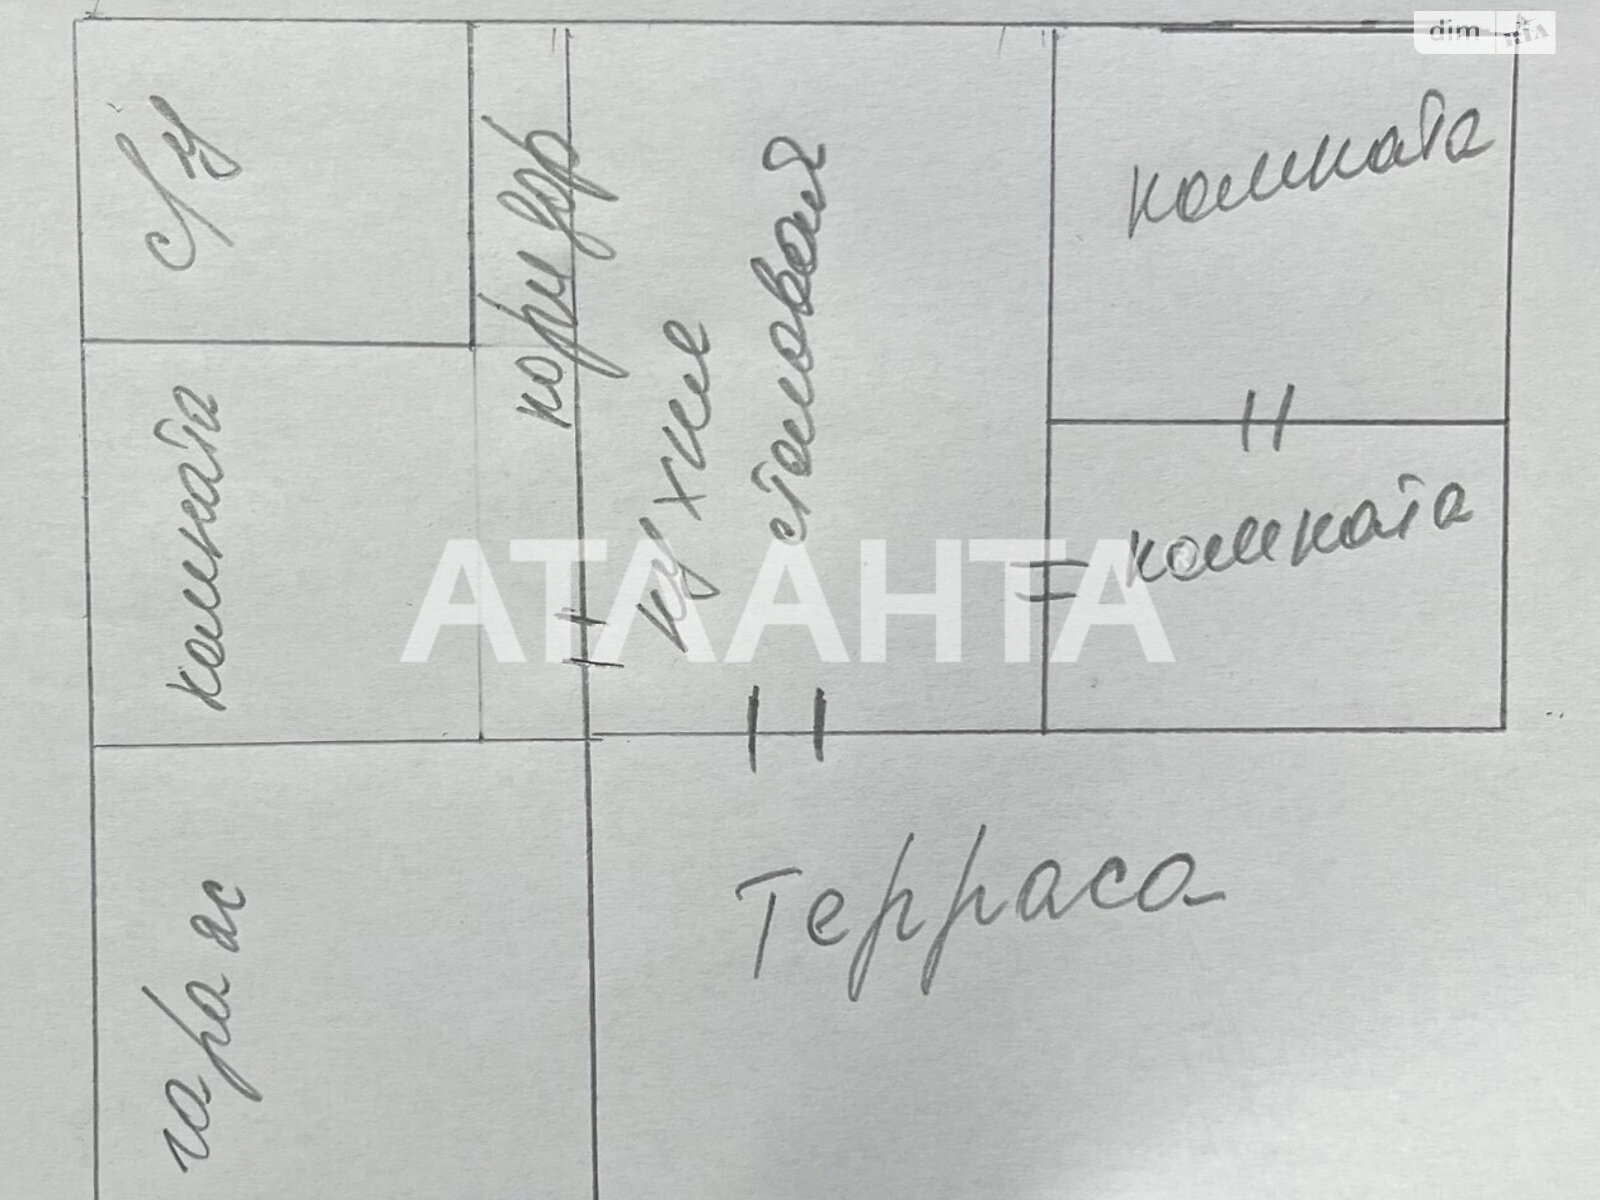 dim
RIA
с/у
коридор
кухня
столовая
комната
комната
комната
АТЛАНТА
Терраса
гараж